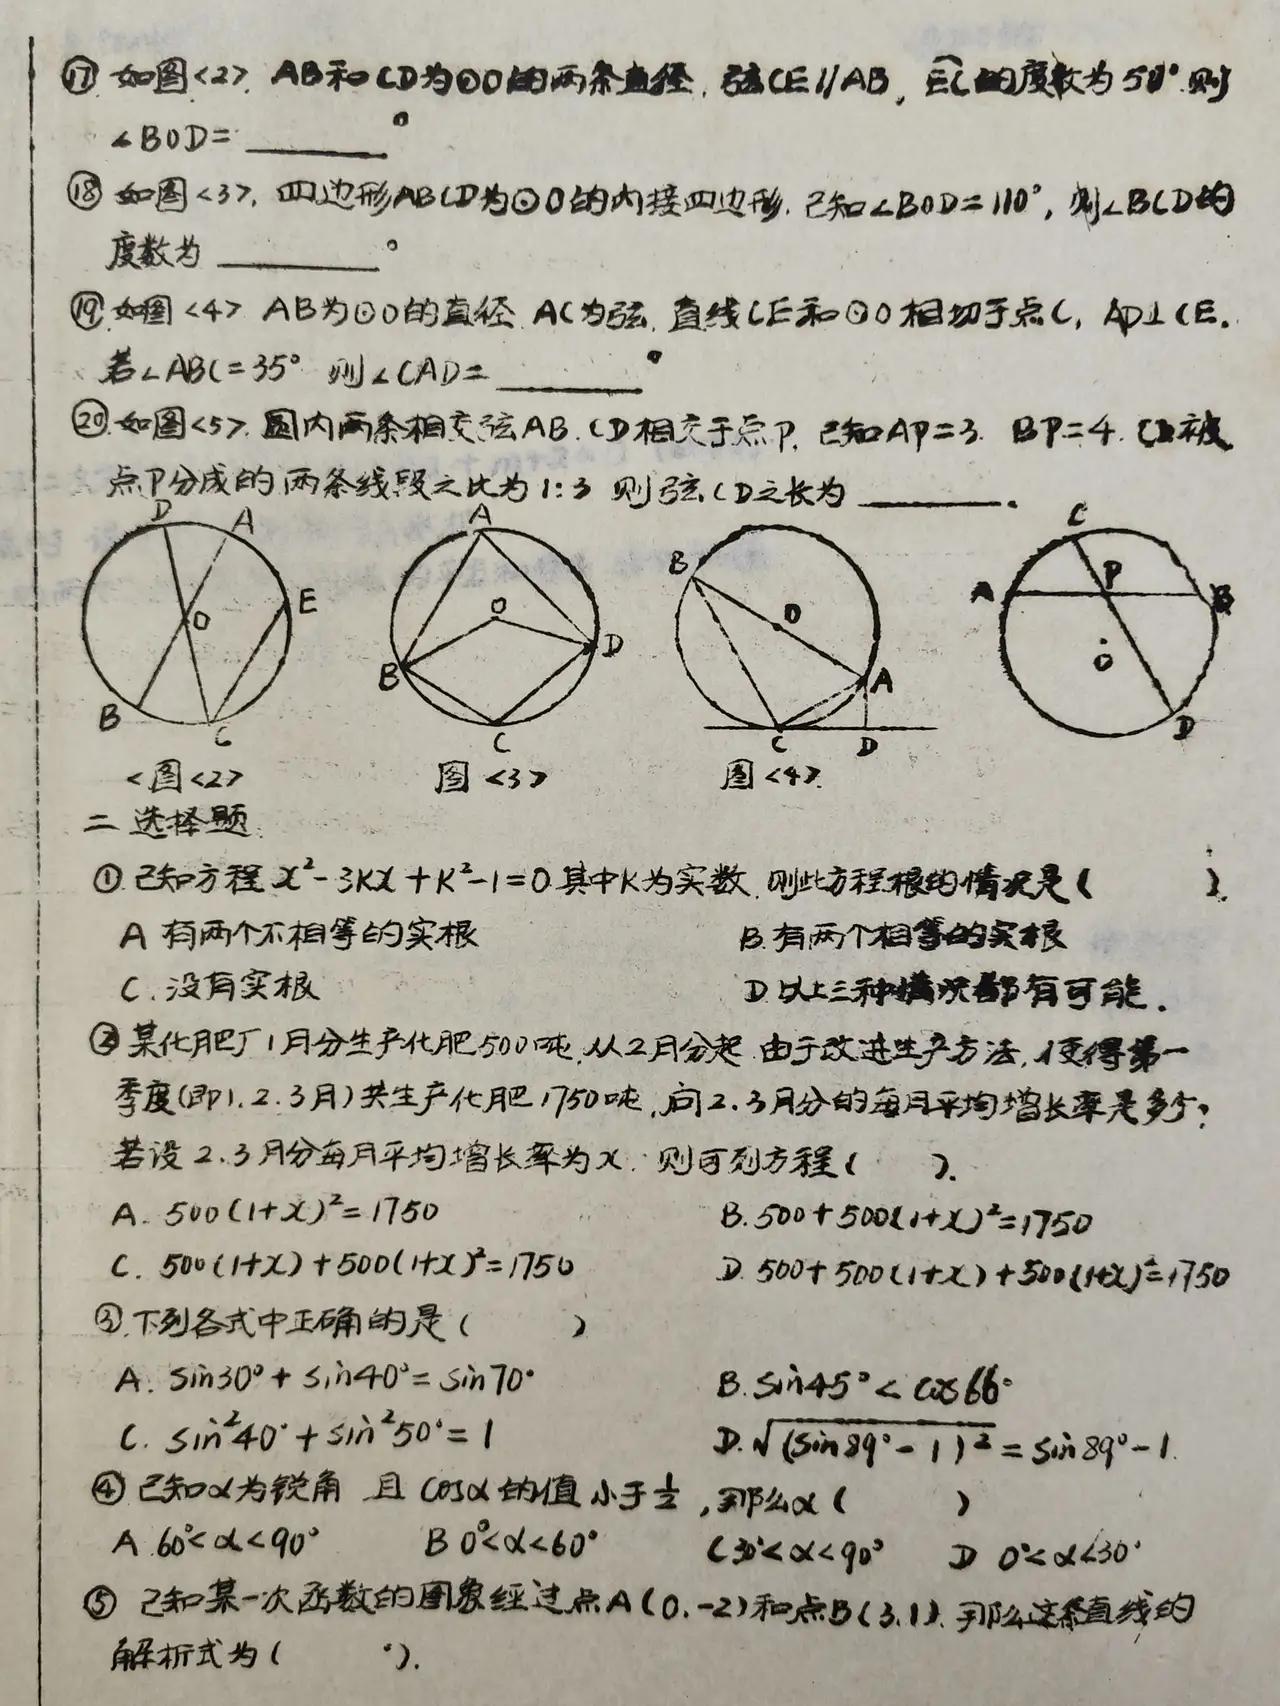 ⑰ 如图<2>. AB和CD为⊙O的两条直径, 弦CE∥AB, EC的度数为50°.则
∠BOD= ________°
⑱ 如图<3>, 四边形ABCD为⊙O的内接四边形. 已知∠BOD=110°, 则∠BCD的
度数为 ________°
⑲.如图<4> AB为⊙O的直径 AC为弦, 直线CE和⊙O相切于点C, AD⊥CE.
若∠ABC=35° 则∠CAD= ________°
⑳.如图<5>. 圆内两条相交弦AB.CD相交于点P, 已知AP=3. BP=4. CD被
点P分成的两条线段之比为1:3 则弦CD之长为 ________.
D A O E B C
A O B D C
B O A C D
C A P B O D
<图<2>
图<3>
图<4>.
二 选择题.
①.已知方程x²-3Kx+K²-1=0.其中K为实数, 则此方程根的情况是( ).
A 有两个不相等的实根 B.有两个相等的实根
C.没有实根 D.以上三种情况都有可能.
②某化肥厂1月分生产化肥500吨,从2月分起.由于改进生产方法,使得第一
季度(即1.2.3月)共生产化肥1750吨,问2.3月分的每月平均增长率是多少?
若设2.3月分每月平均增长率为x. 则可列方程( ).
A. 500(1+x)²=1750 B.500+500(1+x)²=1750
C. 500(1+x)+500(1+x)²=1750 D.500+500(1+x)+500(1+x)²=1750
③.下列各式中正确的是( )
A. sin30°+sin40°=sin70° B.sin45°<cos66°
C. sin²40°+sin²50°=1 D.√(sin89°-1)²=sin89°-1.
④已知α为锐角 且cosα的值小于1/2,那么α( )
A.60°<α<90° B 0°<α<60° C 30°<α<90° D 0°<α<30°
⑤ 已知某一次函数的图象经过点A(0,-2)和点B(3,1).那么这条直线的
解析式为( ).